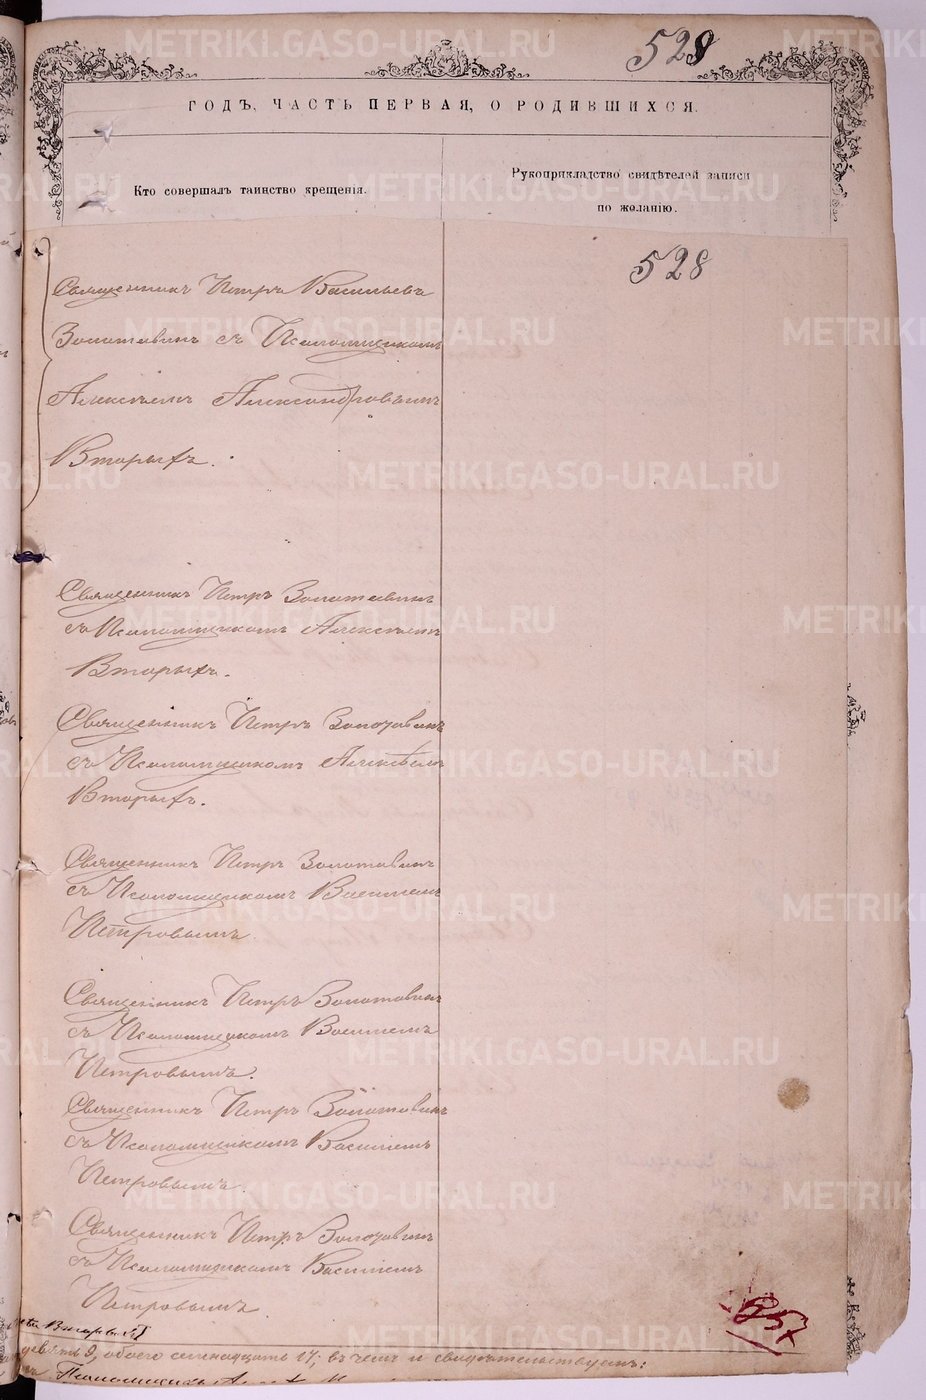 528
ГОДЪ, ЧАСТЬ ПЕРВАЯ, О РОДИВШИХСЯ.
Кто совершалъ таинство крещенія.
Рукоприкладство свидѣтелей записи
по желанію.
528
Священникъ Петръ Васильевъ
Золотавинъ съ Псаломщикомъ
Алексѣемъ Александровымъ
Вторыхъ.
Священникъ Петръ Золотавинъ
съ Псаломщикомъ Алексѣемъ
Вторыхъ.
Священникъ Петръ Золотавинъ
съ Псаломщикомъ Алексѣемъ
Вторыхъ.
Священникъ Петръ Золотавинъ
съ Псаломщикомъ Василіемъ
Петровымъ.
Священникъ Петръ Золотавинъ
съ Псаломщикомъ Василіемъ
Петровымъ.
Священникъ Петръ Золотавинъ
съ Псаломщикомъ Василіемъ
Петровымъ.
Священникъ Петръ Золотавинъ
съ Псаломщикомъ Василіемъ
Петровымъ
Вторыхъ
девять 9, обоего семнадцать 17; въ чемъ и свидѣтельствуемъ:
Псаломщикъ А.
METRIKI.GASO-URAL.RU